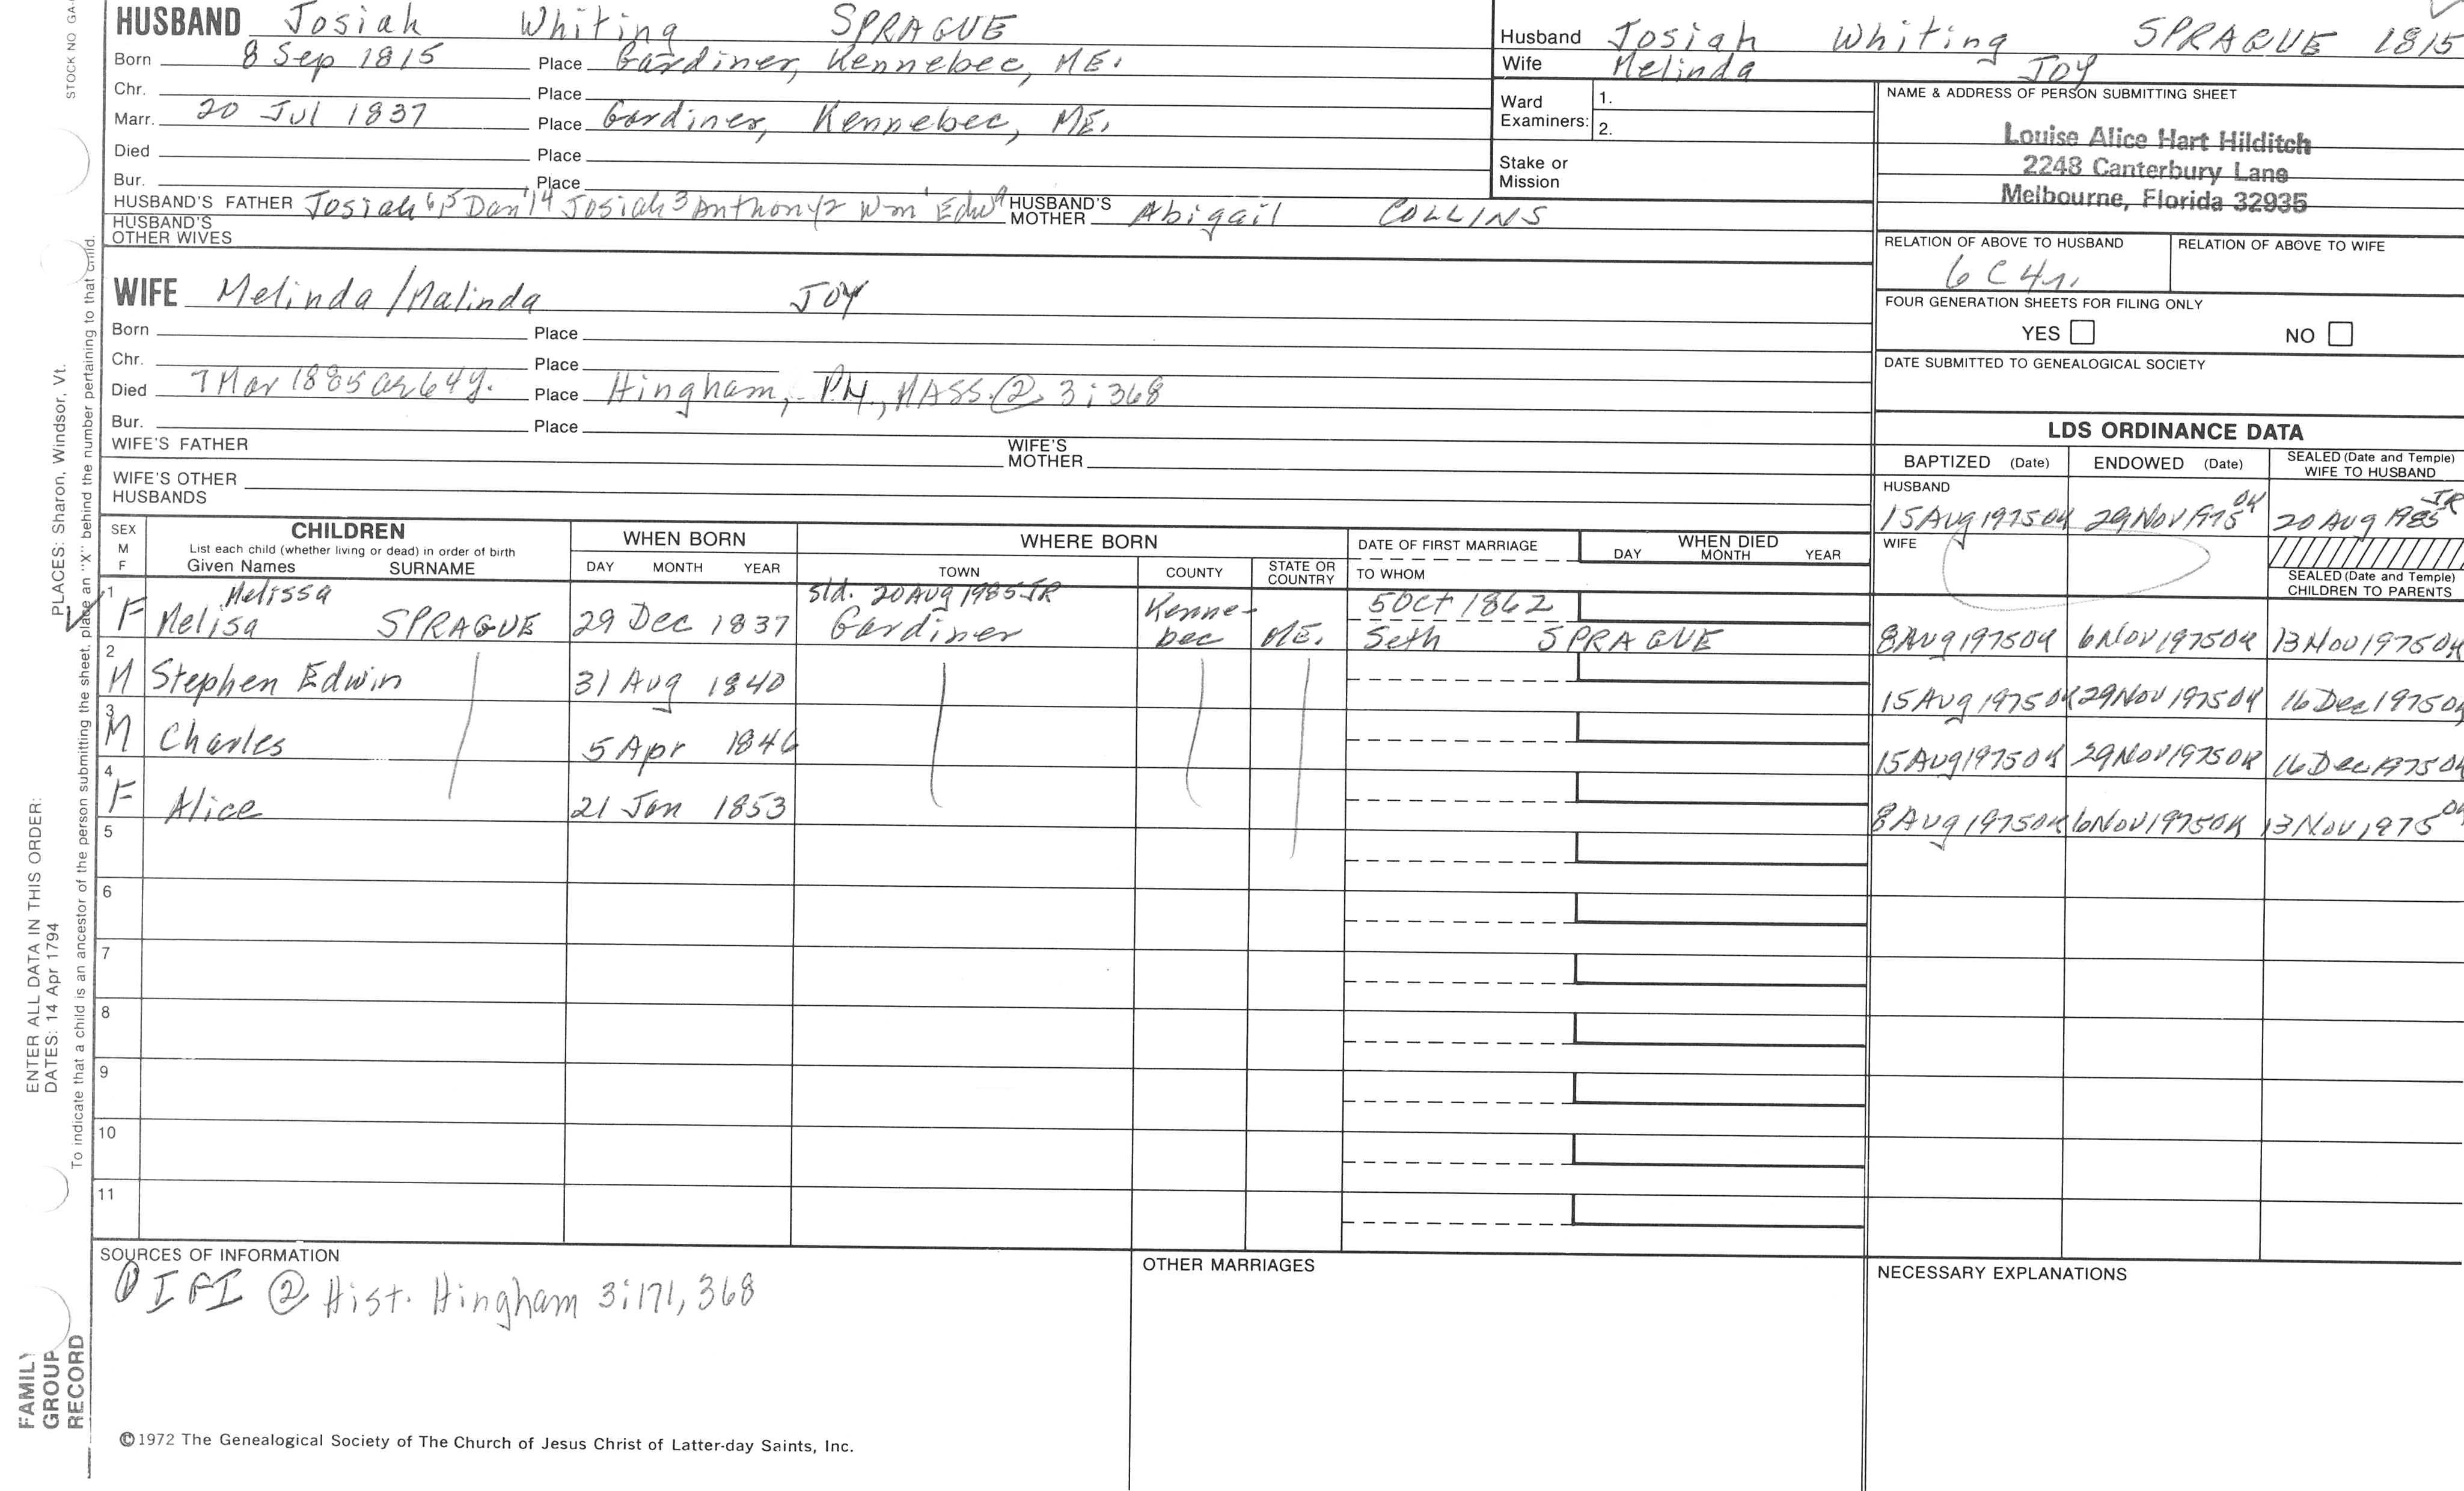 STOCK NO GA-
HUSBAND Josiah Whiting SPRAGUE
Born 8 Sep 1815 Place Gardiner, Kennebec, ME.
Chr. Place
Marr. 20 Jul 1837 Place Gardiner, Kennebec, ME.
Died Place
Bur. Place
HUSBAND'S FATHER Josiah 6,5 Dan'l 4 Josiah 3 Anthony 2 Wm' Edw HUSBAND'S MOTHER Abigail COLLINS
HUSBAND'S OTHER WIVES
WIFE Melinda/Malinda JOY
Born Place
Chr. Place
Died 7 Mar 1885 ae 64y. Place Hingham, PH., MASS. ② 3:368
Bur. Place
WIFE'S FATHER WIFE'S MOTHER
WIFE'S OTHER HUSBANDS
Husband Josiah Whiting SPRAGUE 1815
Wife Melinda JOY
Ward Examiners: 1.
2.
Stake or Mission
NAME & ADDRESS OF PERSON SUBMITTING SHEET
Louise Alice Hart Hilditch
2248 Canterbury Lane
Melbourne, Florida 32935
RELATION OF ABOVE TO HUSBAND RELATION OF ABOVE TO WIFE
6C4r.
FOUR GENERATION SHEETS FOR FILING ONLY
YES NO
DATE SUBMITTED TO GENEALOGICAL SOCIETY
LDS ORDINANCE DATA
BAPTIZED (Date) ENDOWED (Date) SEALED (Date and Temple) WIFE TO HUSBAND
HUSBAND
15 Aug 1975 OK 29 Nov 1975 OK 20 Aug 1985 JR
WIFE
SEALED (Date and Temple) CHILDREN TO PARENTS
SEX M F
CHILDREN
List each child (whether living or dead) in order of birth
Given Names SURNAME
WHEN BORN
DAY MONTH YEAR
WHERE BORN
TOWN COUNTY STATE OR COUNTRY
DATE OF FIRST MARRIAGE
TO WHOM
WHEN DIED
DAY MONTH YEAR
Melissa sld. 20 AUG 1985 JR 5 Oct 1862
1 F Melisa SPRAGUE 29 Dec 1837 Gardiner Kenne-bec ME. Seth SPRAGUE 8 Aug 1975 OK 6 Nov 1975 OK 13 Nov 1975 OK
2 M Stephen Edwin 31 Aug 1840 15 Aug 1975 OK 29 Nov 1975 OK 16 Dec 1975 OK
3 M Charles 5 Apr 1846 15 Aug 1975 OK 29 Nov 1975 OK 16 Dec 1975 OK
4 F Alice 21 Jan 1853 8 Aug 1975 OK 6 Nov 1975 OK 13 Nov 1975 OK
5
6
7
8
9
10
11
SOURCES OF INFORMATION
① IGI ② Hist. Hingham 3:171, 368
OTHER MARRIAGES
NECESSARY EXPLANATIONS
©1972 The Genealogical Society of The Church of Jesus Christ of Latter-day Saints, Inc.
FAMILY GROUP RECORD
ENTER ALL DATA IN THIS ORDER:
DATES: 14 Apr 1794
PLACES: Sharon, Windsor, Vt.
To indicate that a child is an ancestor of the person submitting the sheet, place an "X" behind the number pertaining to that child.